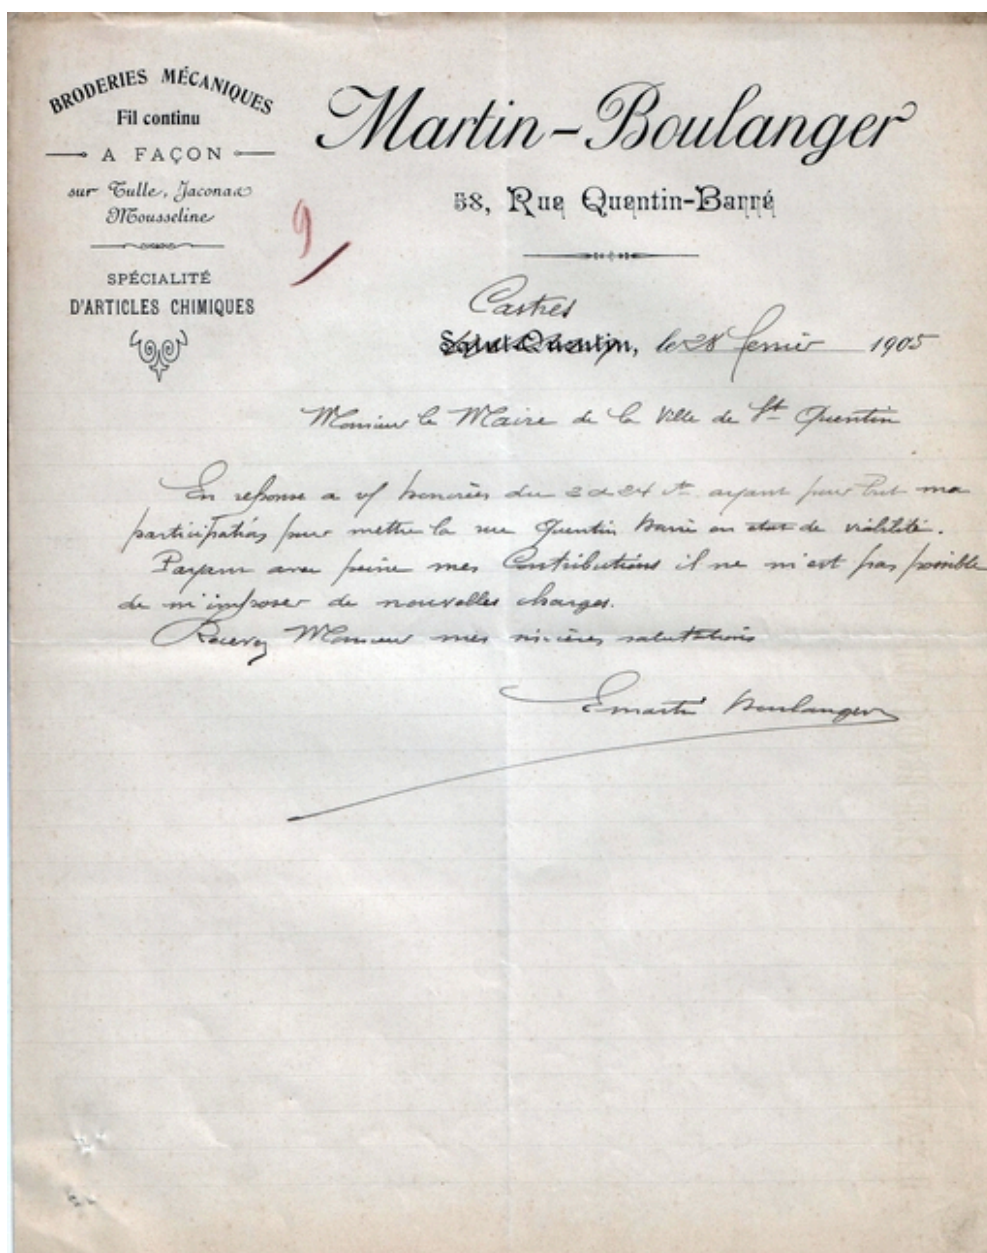 BRODERIES MÉCANIQUES
Fil continu
A FAÇON
sur Tulle, Jaconas
Mousseline
SPÉCIALITÉ
D'ARTICLES CHIMIQUES
Martin-Boulanger
58, Rue Quentin-Barré
9
Castres
Saint-Quentin, le 28 fevrier 1905
Monsieur le Maire de la Ville de St Quentin
En reponse a v/ honorées du 2 & 24 ct ayant pour but ma
participation pour mettre la rue Quentin Barré en état de viabilité.
Payant avec peine mes Contributions il ne m'est pas possible
de m'imposer de nouvelles charges.
Recevez Monsieur mes sincères salutations
E Martin Boulanger